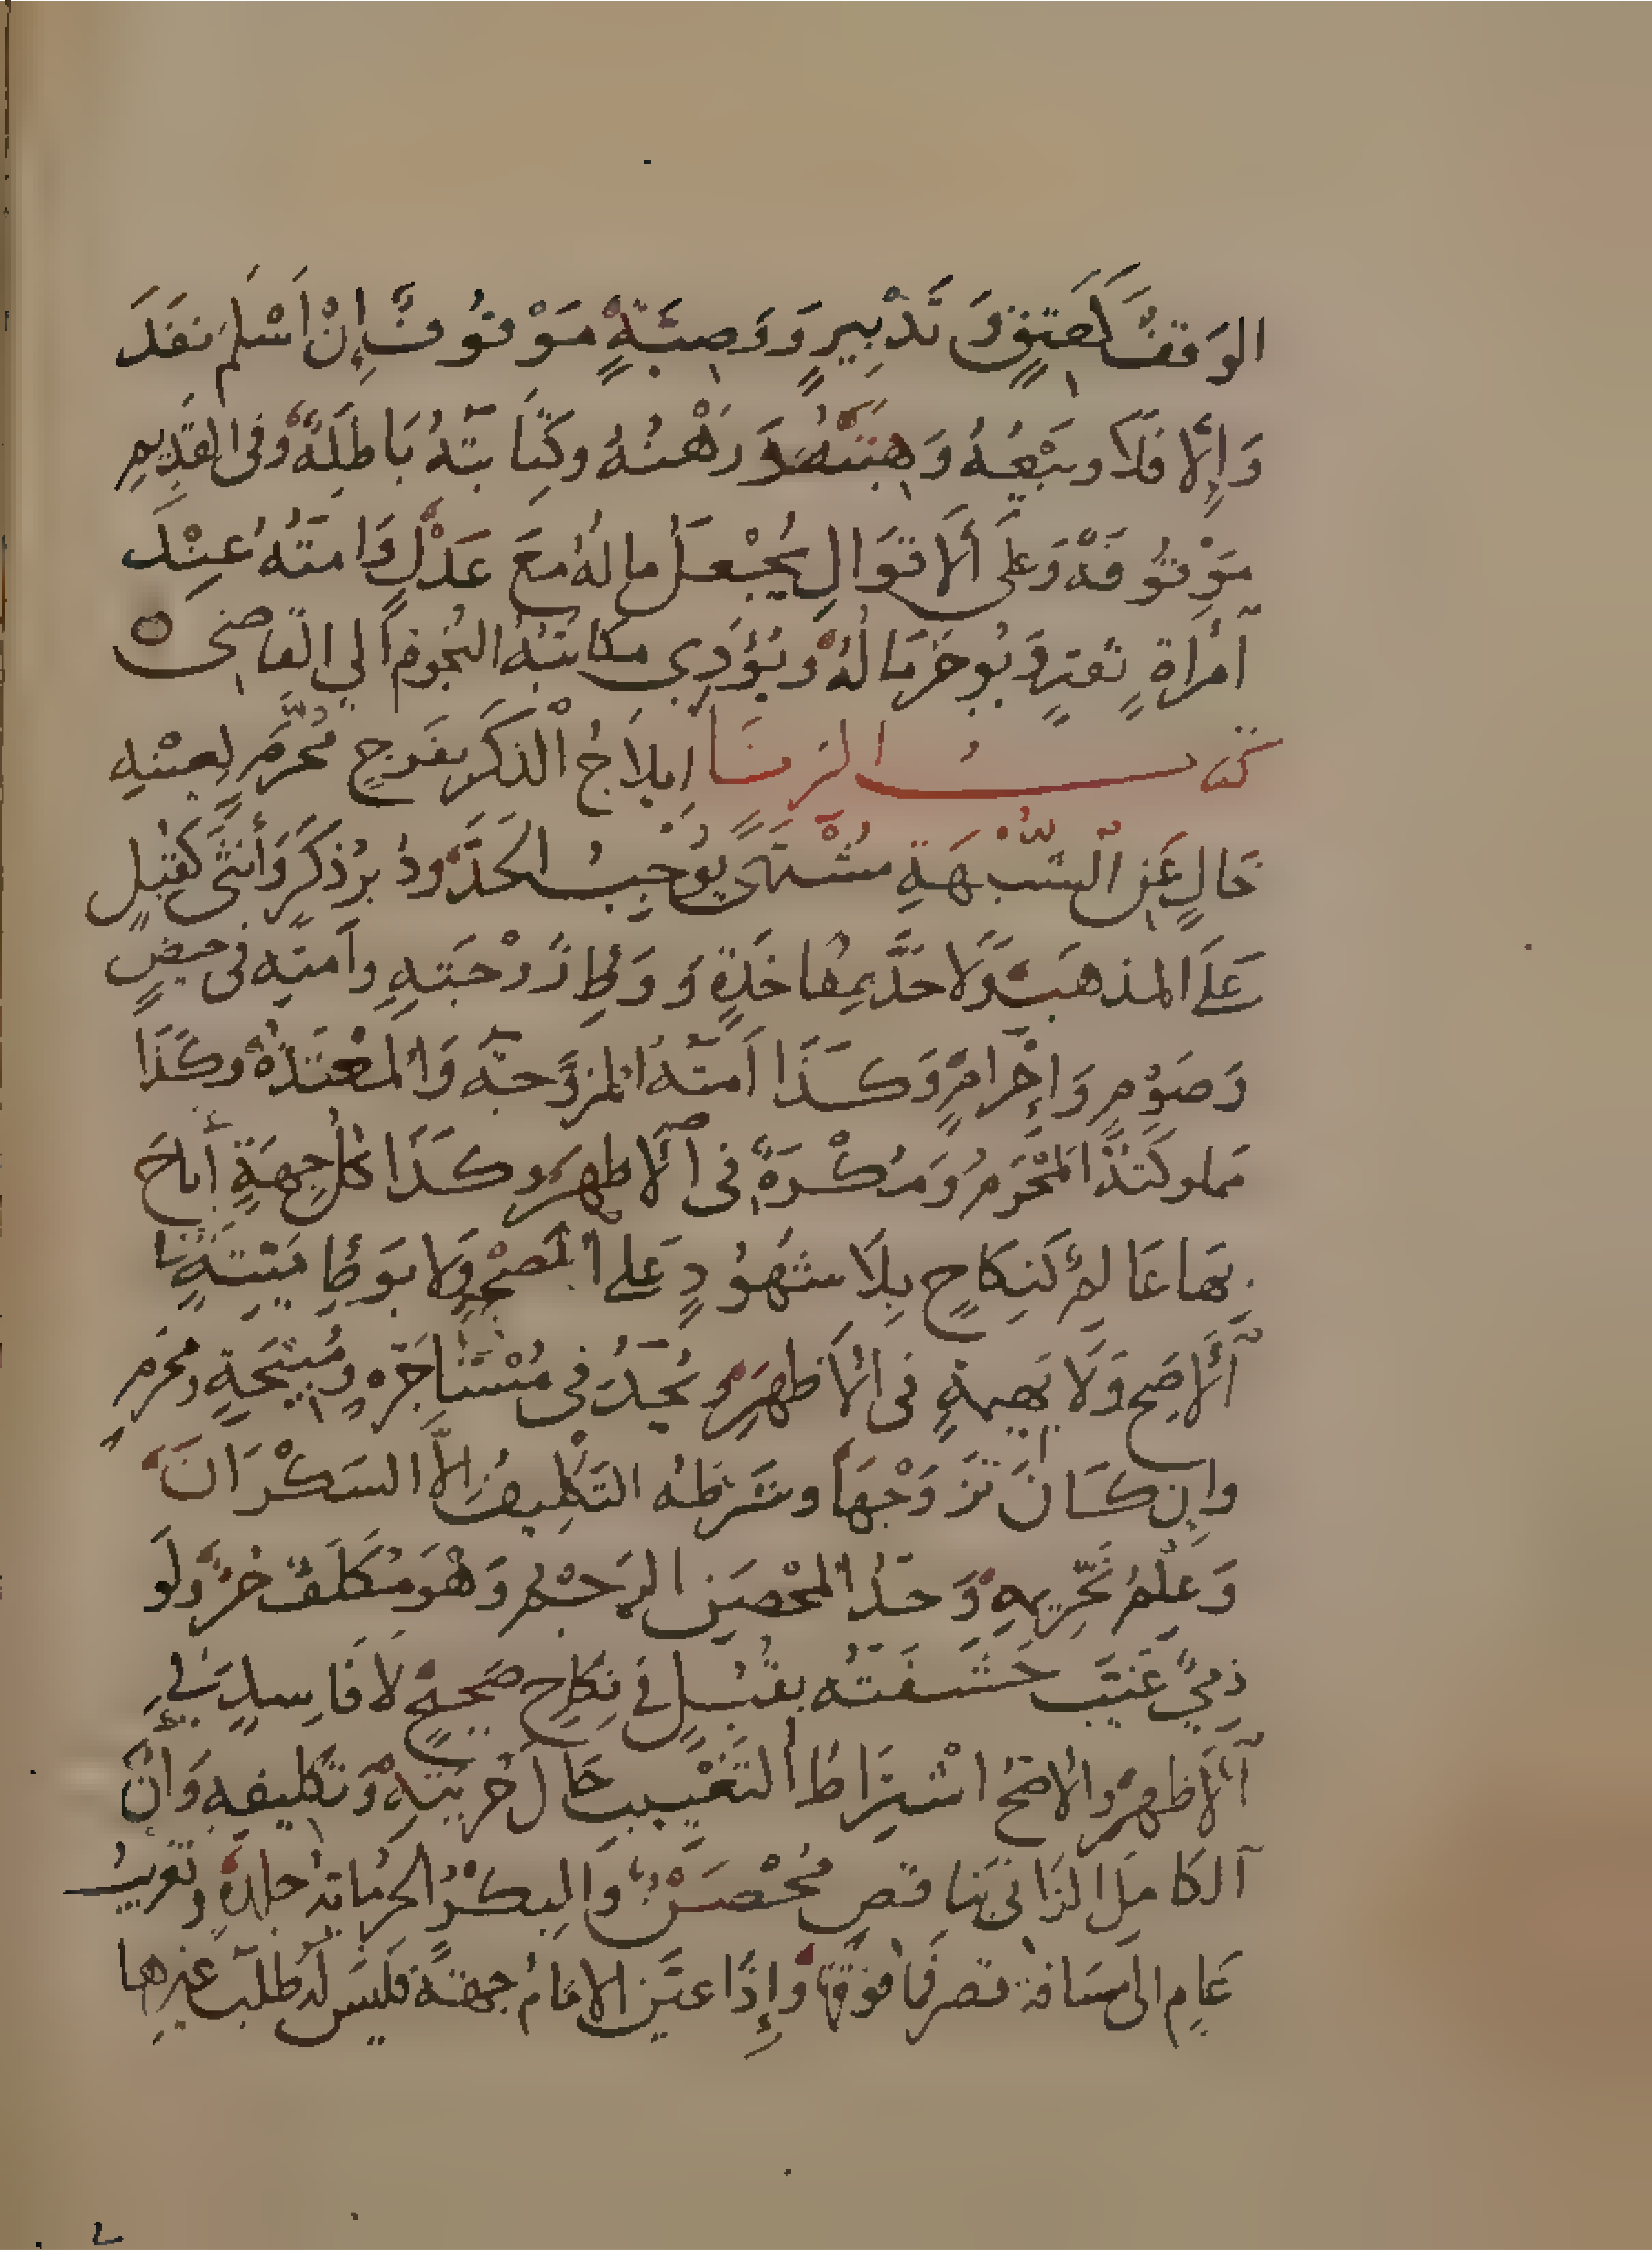 الوَقفَ كَعِتقٍ وَ تَدْبِيرٍ وَ وَصِيَّةٍ مَوْقُوفٌ إِنْ أَسْلَمَ نفَذَ
وَإِلَّا فَلَا وبَيْعُهُ وَهِبَتُهُ وَرَهْنُهُ وكِتَابَتَهُ بَاطِلَةٌ وفى القَدِيمِ
مَوْقُوفَةٌ وَعَلى ألاقوَالِ يُجْعَلُ مالهُ معَ عَدْلٍ وَامَتُهُ عِنْدَ
آمْرَاةٍ ثقةٍ وَيُوجَرُ مَالُهُ وَيُؤدِي مكاتبُهُ النُجُومَ الي القاضِى ه
كتابُ الزنَا إيلَاجُ الْذَكَرِ بفَرجٍ مُحَرَّمٍ لِعيْنِهِ
خَالٍ عَنِ الْشُّبْهَةِ مُشْتَهًى يُوجِبُ الحَدَّ ودُبرُ ذكَرٍ وَأُنثَى كَقُبُلٍ
عَلَى المذهَبِ وَلَا حَدَّ بِمُفاخَذَةٍ وَ وَطِ زَوْجَتِهِ وأمَتِه فى حيضٍ
وَصَوْمٍ وَإِحْرامٍ وَكَذَا أمَتُهُ المزَوَّجَةُ وَالْمعْتَدَّةُ وَكَذَا
مَملوكَتُهُ المَحْرَمُ وَمُكْرَهٌ فى ألاظهرِ وكَذَا كُلُّ جِهَةٍ أَبَاحَ
بِهَا عَالِمٌ كَنِكَاحٍ بِلَا شُهُودٍ عَلى الْصحِيحِ وَلا بوَطِ مَيْتَةٍ فى
ألاصَحِّ وَلَا بَهِيمةٍ فى الأظهَرِ ويُحَدُّ فى مُسْتَأجَرَةٍ ومُبِيحَةٍ ومحْرَمٍ
وإن كَانَ تَزَوَّجَهَا وشَرْطهُ التَكْلِيفُ إلاَّ السَكْرَانَ
وَعِلْمُ تَحْرِيمِهِ وَحَدُّ المُحْصَنِ الرَجْمُ وَهُوَ مُكَلفٌ حُرٌّ وَلَو
ذِمِّيٌ غَيَّبَ حَشَفَتَهُ بقُبُلٍ فى نِكَاحٍ صَحِيحٍ لا فَاسِدٍ فى
ألاظهرِ والاصَحُّ اشْتِرَاطُ التَغْيِيبِ حَالَ حُرِيَتِهِ وَتَكليفِهِ وَأنَّ
الكَامِلَ الزَانى بنَاقصٍ مُحْصَنٌ وَالبِكْرُ الحُرُ مايةُ جلدَةٍ وَتغرِيبُ
عَامٍ الى مَسَافَةِ قصرٍ فَما فَوْقَها وَإِذَا عيَّنَ الإمَامُ جِهَةً فليسَ لَهُ طلَبُ غيرِها